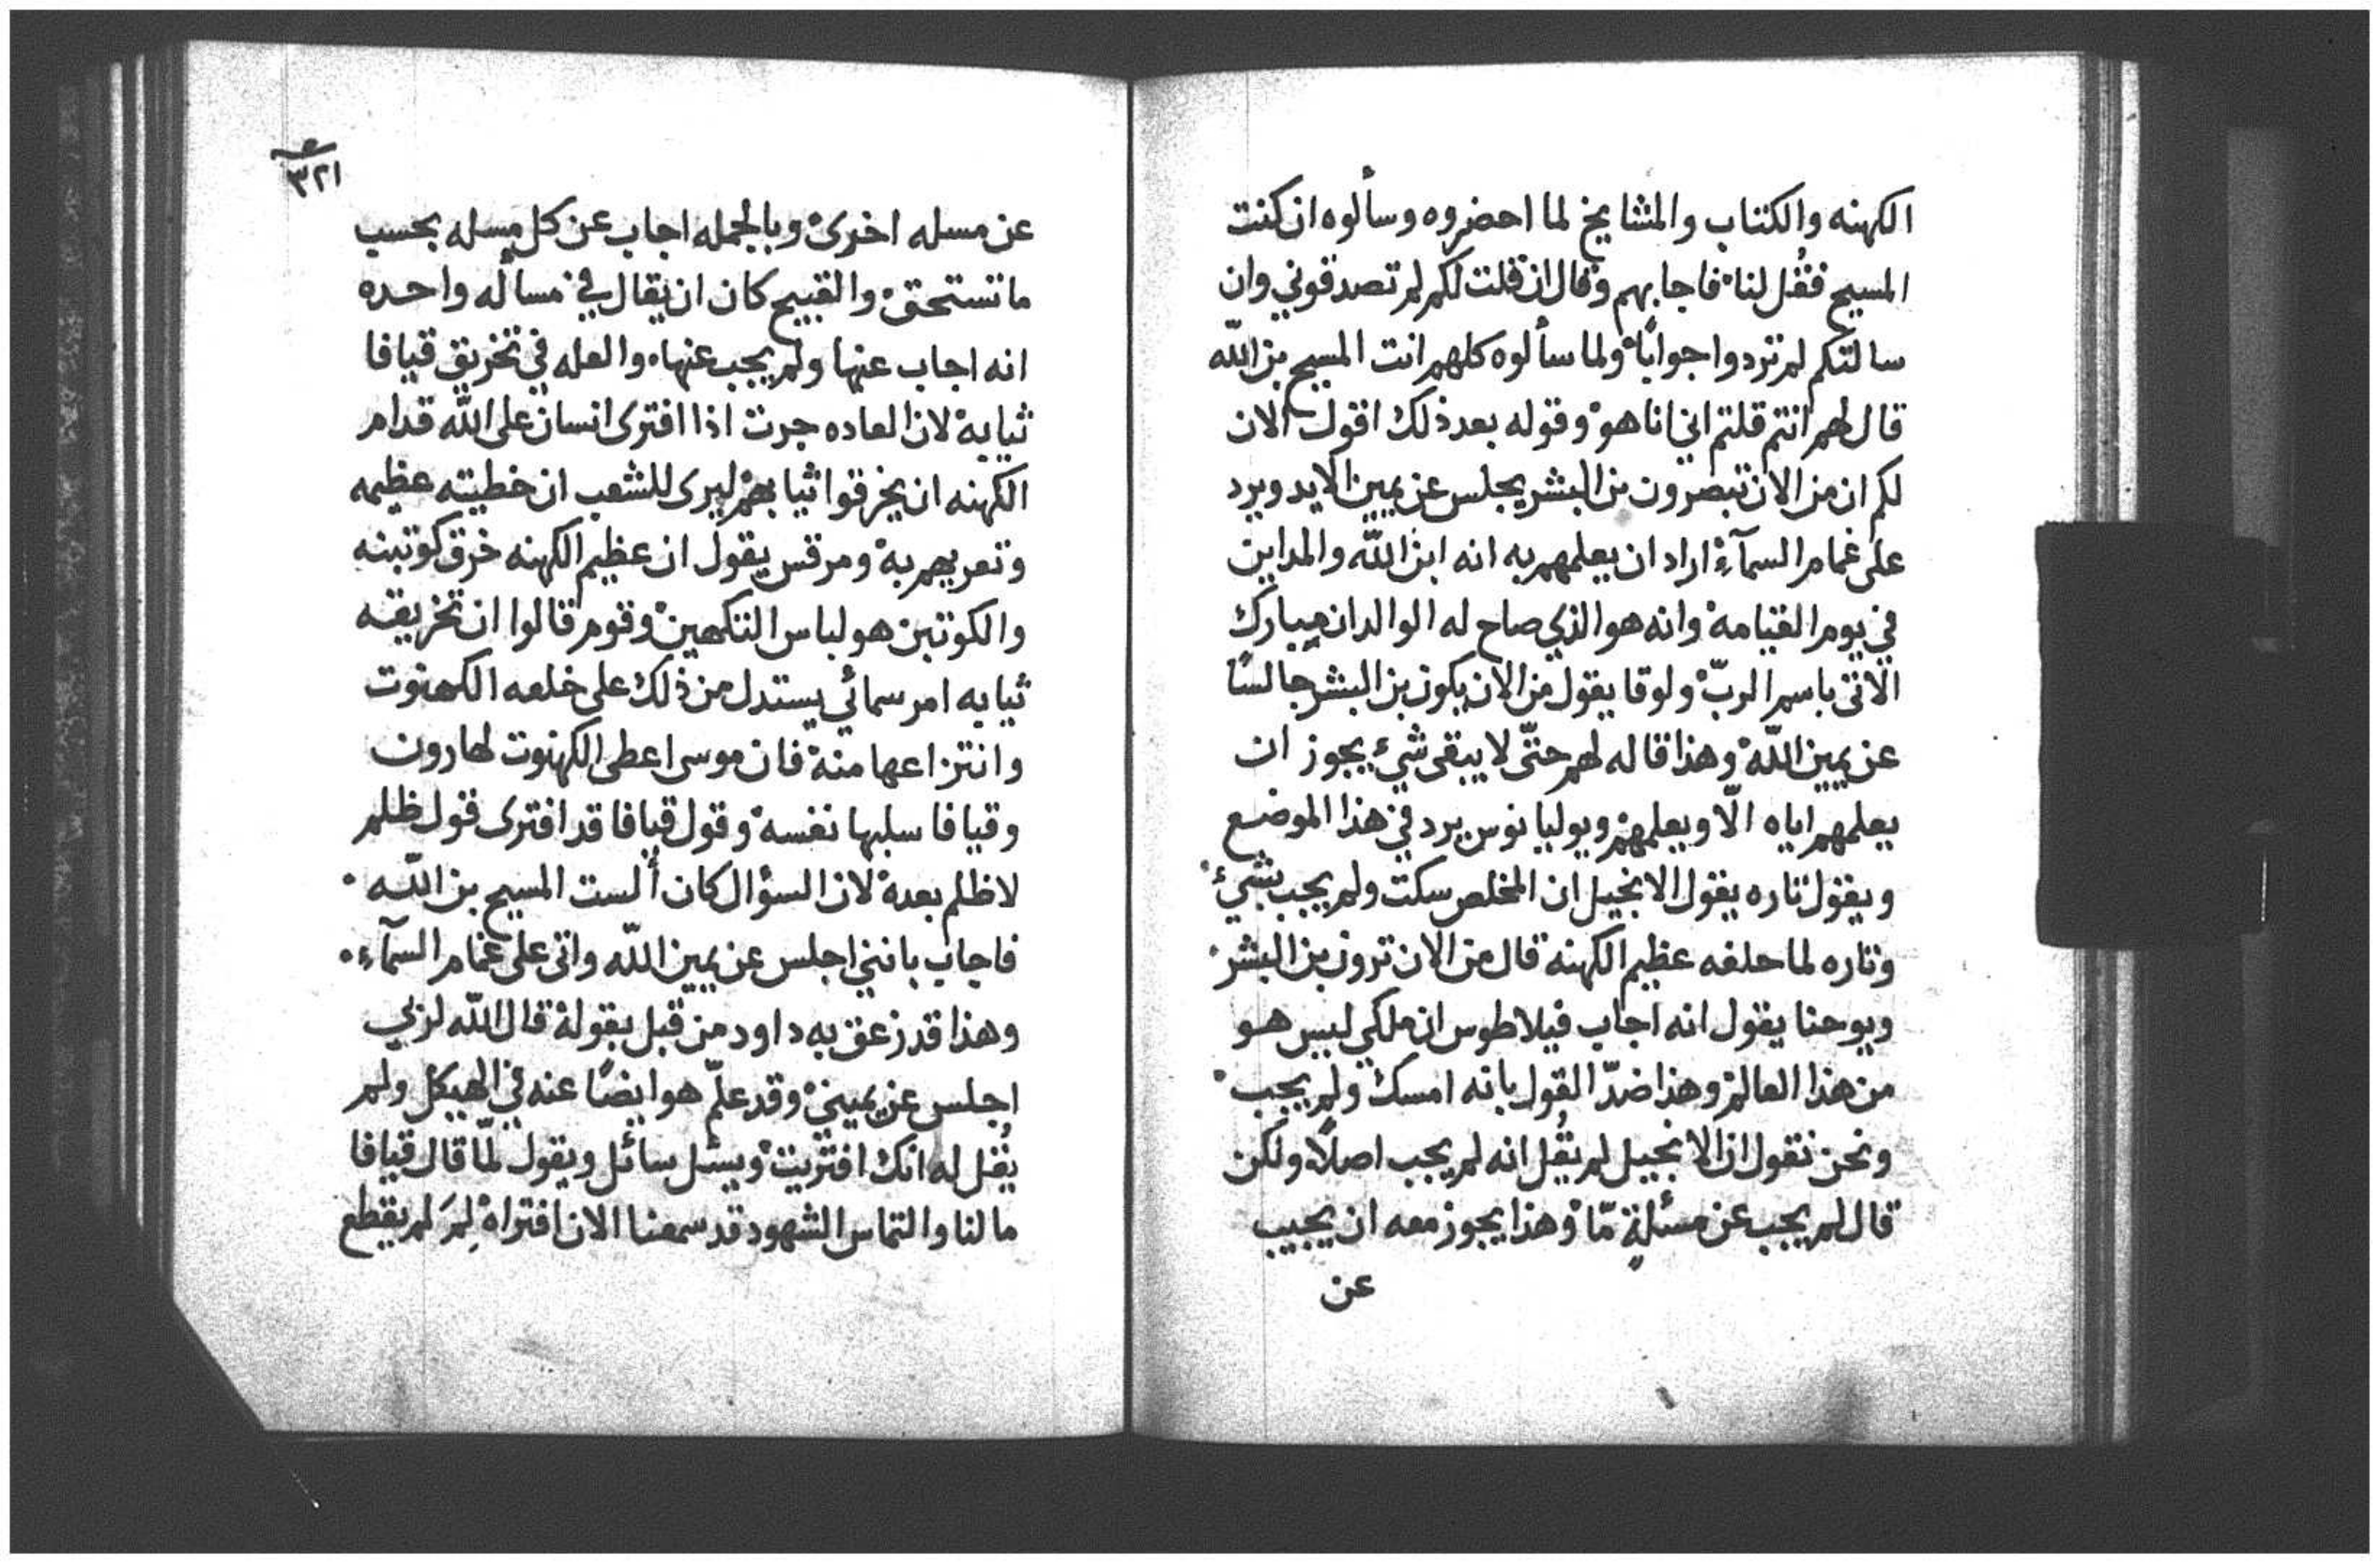 الكهنه والكتاب والمشايخ لما احضروه وسألوه ان كنت
المسيح فقُل لنا فاجابهم وقال ان قلت لكم لم تصدقوني وان
سالتكم لم تردوا جوابًا ولما سألوه كلهم انت المسيح بن اللّه
قال لهم انتم قلتم اني انا هو وقوله بعد ذلك اقول الان
لكم ان من الان تبصرون بن البشر يجلس عن يمين الايد ويرد
على غمام السمآء اراد ان يعلمهم به انه ابن اللّه والمداين
في يوم القيامه وانه هو الذي صاح له الوالدان مبارك
الاتى باسم الربّ ولوقا يقول من الان يكون بن البشر جالسًا
عن يمين اللّه وهذا قاله لهم حتّى لا يبقى شيء يجوز ان
يعلمهم اياه الّا ويعلمهم ويوليانوس يرد في هذا الموضع
ويقول تاره يقول الانجيل ان المخلص سكت ولم يجب بشيء
وتاره لما حلفه عظيم الكهنه قال من الان ترون بن البشر
ويوحنا يقول انه اجاب فيلاطوس ان ملكي ليس هو
من هذا العالم وهذا ضدّ القول بانه امسك ولم يجب
ونحن نقول ان الانجيل لم يقُل انه لم يجب اصلًا ولكن
قال لم يجب عن مسئلةٍ مّا وهذا يجوز معه ان يجيب
عن
٣٢١
عن مسله اخرى وبالجمله اجاب عن كل مسله بحسب
ما تستحق والقبيح كان ان يقال في مساله واحده
انه اجاب عنها ولم يجب عنها والعله في تخريق قيافا
ثيابه لان العاده جرت اذا افترى انسان على اللّه قدام
الكهنه ان يخرقوا ثيابهم ليرى للشعب ان خطيته عظيمه
وتعريهم به ومرقس يقول ان عظيم الكهنه خرق كوتينه
والكوتين هو لباس التكهين وقوم قالوا ان تخريقه
ثيابه امر سمائي يستدل من ذلك على خلعه الكهنوت
وانتزاعها منه فان موسى اعطى الكهنوت لهارون
وقيافا سلبها نفسه وقول قيافا قد افترى قول ظلم
لا ظلم بعده لان السؤال كان ألست المسيح بن اللّه
فاجاب بانني اجلس عن يمين اللّه واتى على غمام السمآء
وهذا قد زعق به داود من قبل بقوله قال اللّه لربي
اجلس عن يميني وقد علّم هو ايضًا عنه في الهيكل ولم
يُقل له انك افتريت ويسئل سائل ويقول لمّا قال قيافا
ما لنا والتماس الشهود قد سمعنا الان افتراه لِمَ لم يقطع